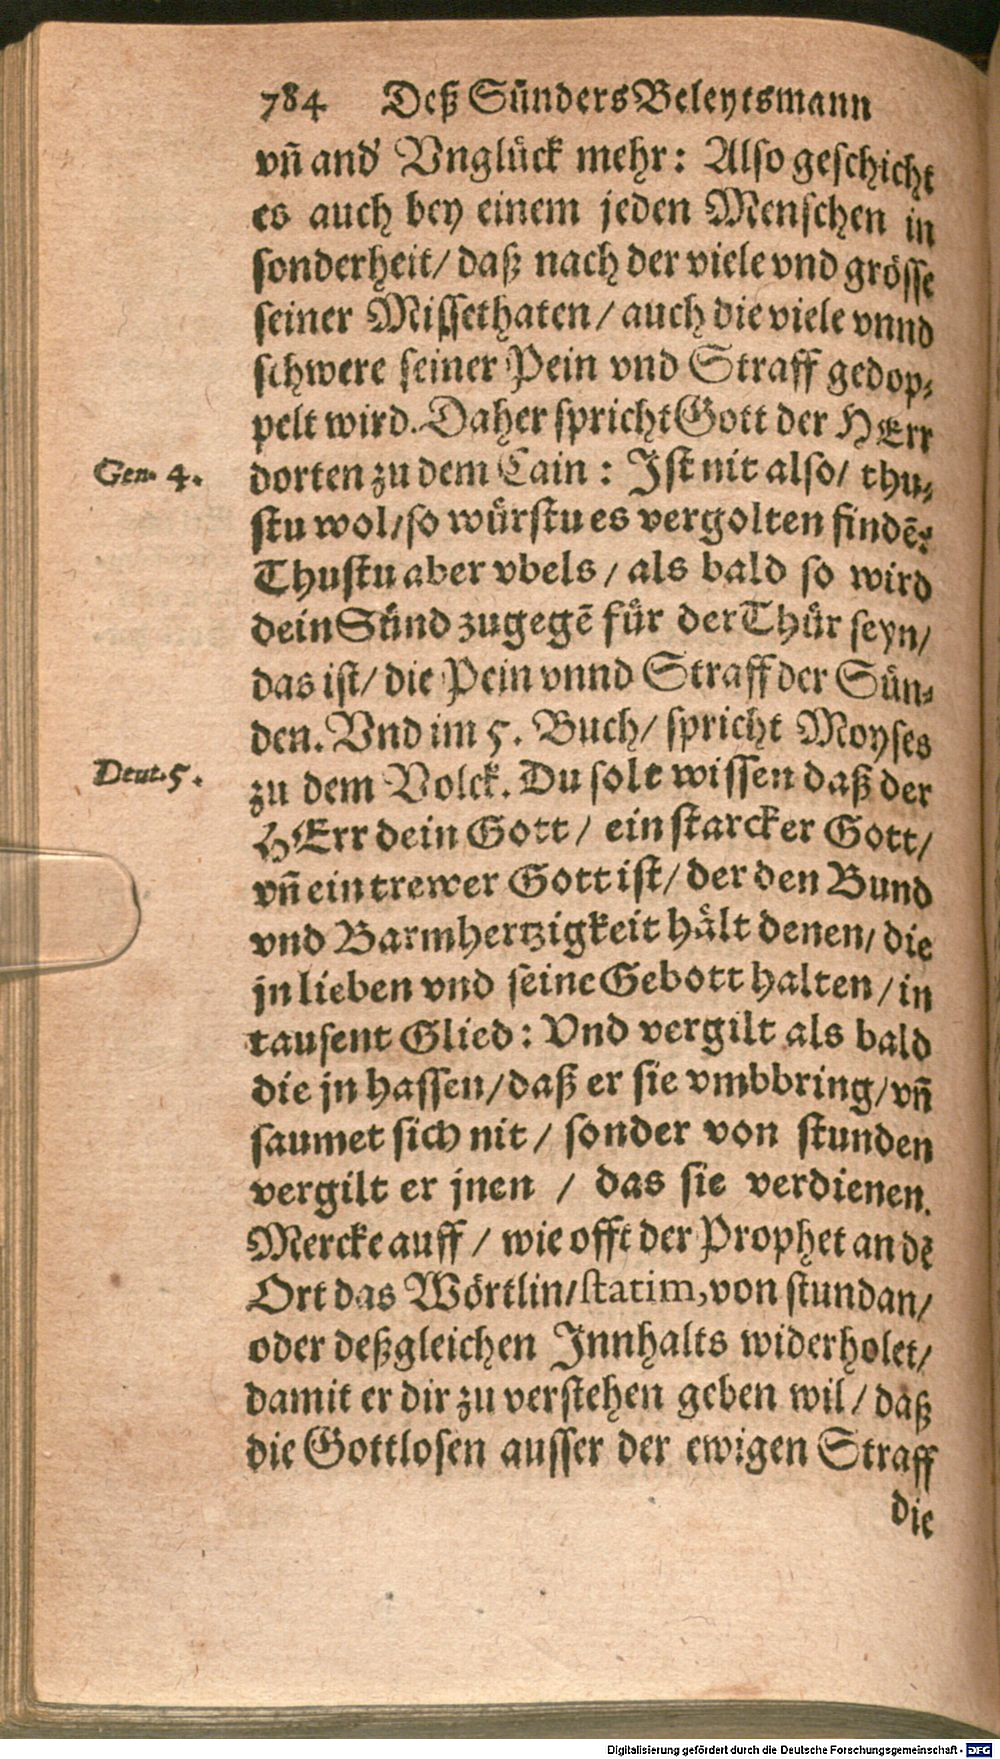 784 Deß Sünders Beleytsmann
vñ and' Vnglück mehr: Also geschicht
es auch bey einem jeden Menschen in
sonderheit/ daß nach der viele vnd grösse
seiner Missethaten/ auch die viele vnnd
schwere seiner Pein vnd Straff gedop-
pelt wird. Daher spricht Gott der HErr
Gen. 4. dorten zu dem Cain: Ist nit also/ thu-
stu wol/ so würstu es vergolten findē:
Thustu aber vbels/ als bald so wird
dein Sünd zugegē für der Thür seyn/
das ist/ die Pein vnnd Straff der Sün-
den. Vnd im 5. Buch/ spricht Moyses
Deut. 5. zu dem Volck. Du solt wissen daß der
HErr dein Gott/ ein starcker Gott/
vñ ein trewer Gott ist/ der den Bund
vnd Barmhertzigkeit hält denen/ die
jn lieben vnd seine Gebott halten/ in
tausent Glied: Vnd vergilt als bald
die jn hassen/ daß er sie vmbbring/ vñ
saumet sich nit/ sonder von stunden
vergilt er jnen/ das sie verdienen.
Mercke auff/ wie offt der Prophet an dē
Ort das Wörtlin/ statim, von stundan/
oder deßgleichen Innhalts widerholet/
damit er dir zu verstehen geben wil/ daß
die Gottlosen ausser der ewigen Straff
die
Digitalisierung gefördert durch die Deutsche Forschungsgemeinschaft - DFG